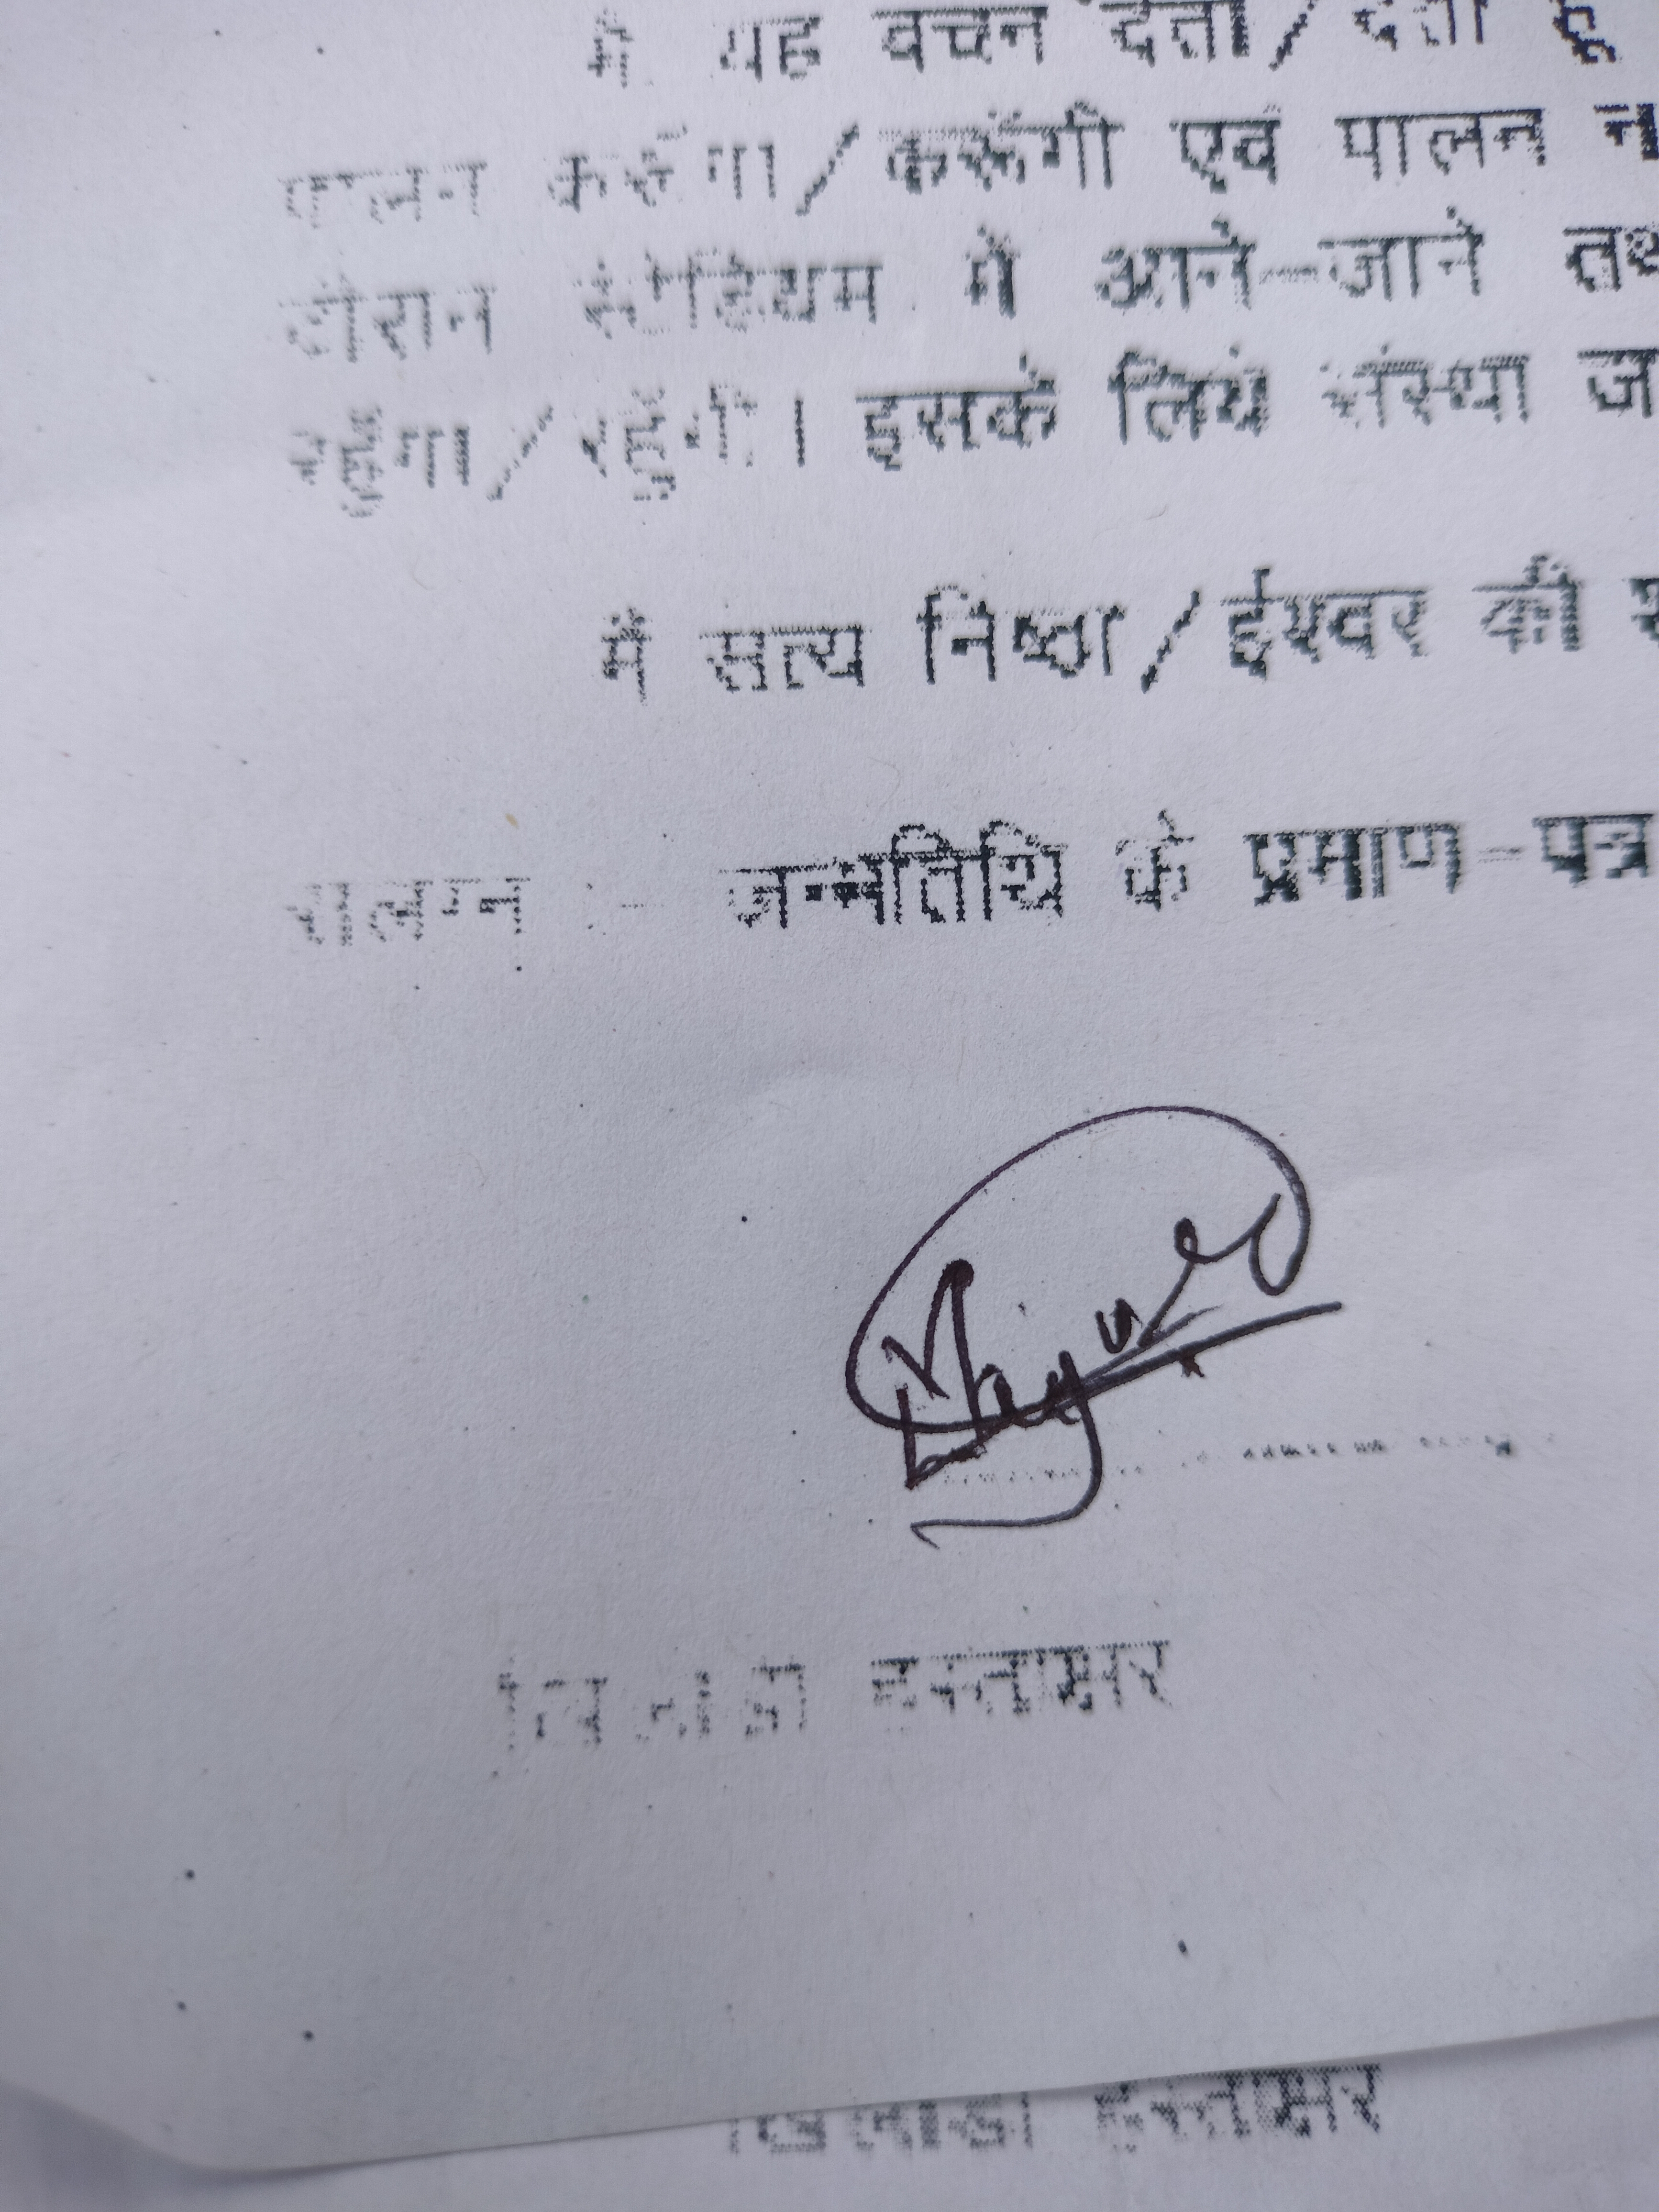 मैं यह वचन देता/देती हूँ
पालन करुंगा/करूंगी एवं पालन न
दौरान स्टेडियम में आने-जाने
रहूंगा/रहूंगी। इसके लिये संस्था
मैं सत्य निष्ठा/ईश्वर की
संलग्न :- जन्मतिथि के प्रमाण-पत्र
Mayur
खिलाडी हस्ताक्षर
खिलाडी हस्ताक्षर